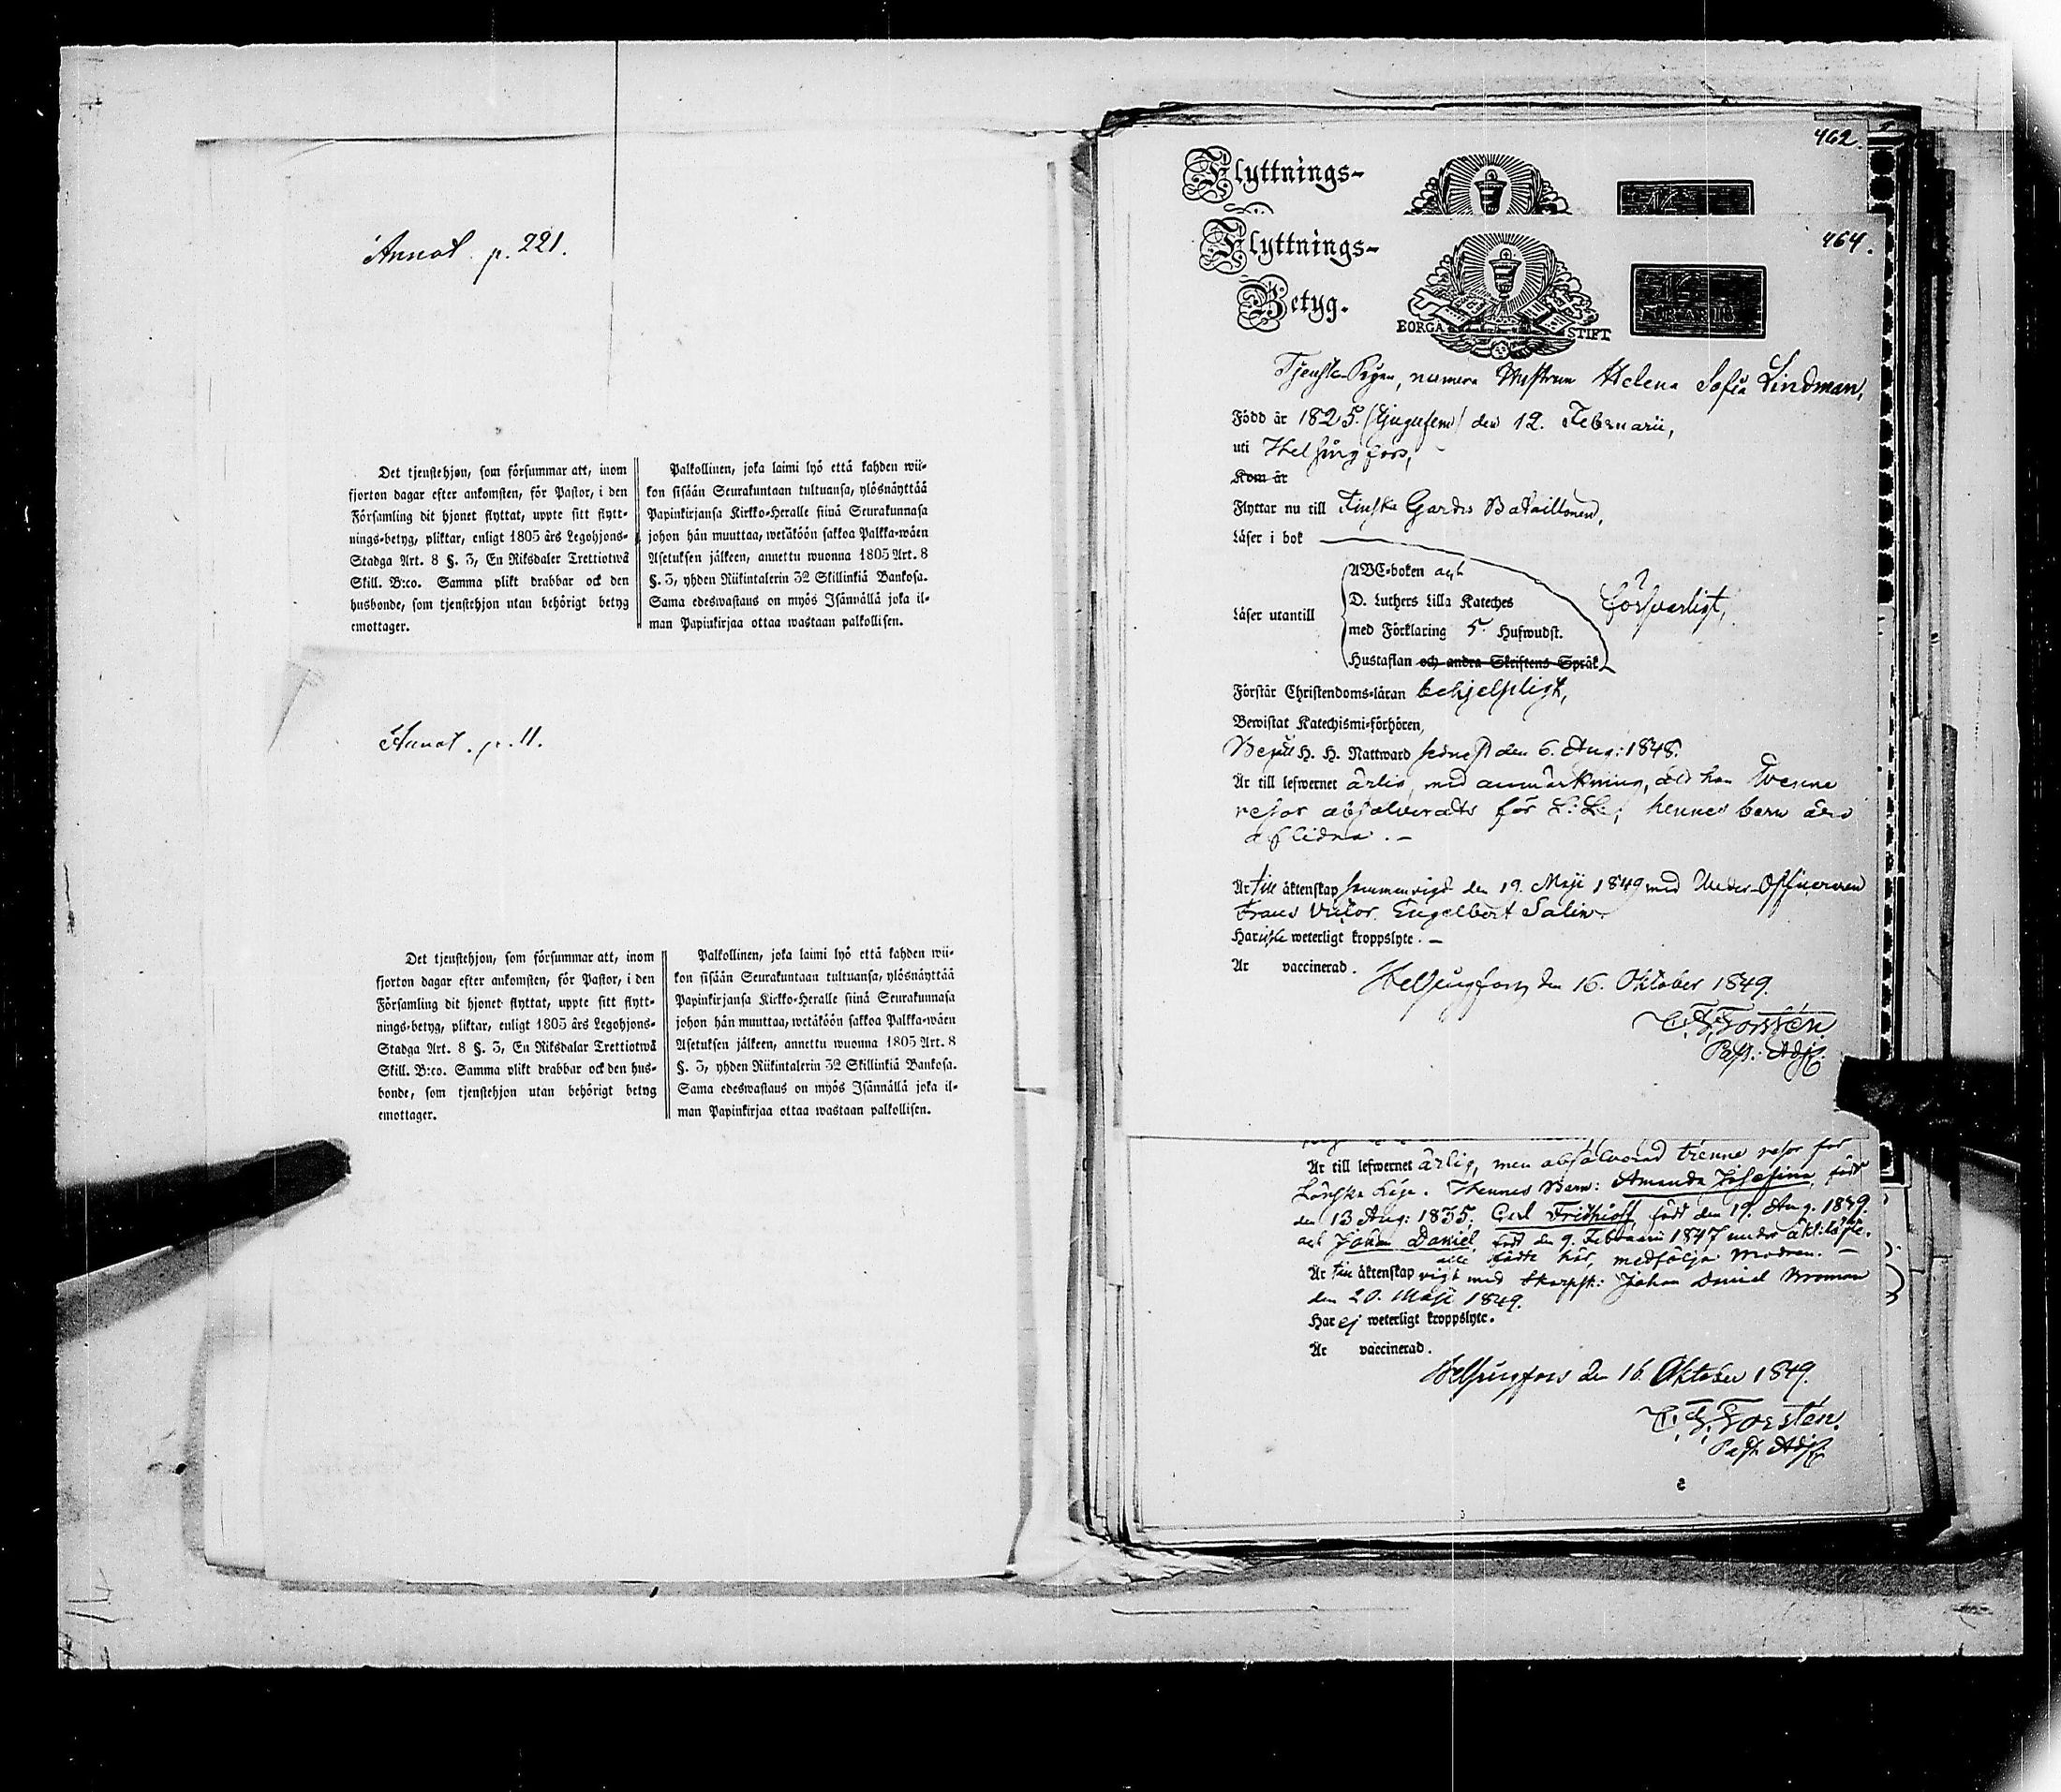 Annot. p. 221.
Det tjenstehjon, som försummar att, inom
fjorton dagar efter ankomsten, för Pastor, i den
Församling dit hjonet flyttat, uppte sitt flytt-
nings-betyg, pliktar, enligt 1805 års Legohjons-
Stadga Art. 8 §. 3, En Riksdaler Trettiotwå
Skill. B:co. Samma plikt drabbar ock den
husbonde, som tjenstehjon utan behörigt betyg
emottager.
Palkollinen, joka laimi lyö että kahden wii-
kon sisään Seurakuntaan tultuansa, ylösnäyttää
Papinkirjansa Kirkko-Heralle siinä Seurakunnasa
johon hän muuttaa, wetäköön sakkoa Palkka-wäen
Asetuksen jälkeen, annettu wuonna 1805 Art. 8
§. 3, yhden Riikintalerin 32 Skillinkiä Bankosa.
Sama edeswastaus on myös Isännällä joka il-
man Papinkirjaa ottaa wastaan palkollisen.
Annot. p. 11.
Det tjenstehjon, som försummar att, inom
fjorton dagar efter ankomsten, för Pastor, i den
Församling dit hjonet flyttat, uppte sitt flytt-
nings-betyg, pliktar, enligt 1805 års Legohjons-
Stadga Art. 8 §. 3, En Riksdalar Trettiotwå
Skill. B:co. Samma plikt drabbar ock den hus-
bonde, som tjenstehjon utan behörigt betyg
emottager.
Palkollinen, joka laimi lyö että kahden wii-
kon sisään Seurakuntaan tultuansa, ylösnäyttää
Papinkirjansa Kirkko-Heralle siinä Seurakunnasa
johon hän muuttaa, wetäköön sakkoa Palkka-wäen
Asetuksen jälkeen, annettu wuonna 1805 Art. 8
§. 3, yhden Riikintalerin 32 Skillinkiä Bankosa.
Sama edeswastaus on myös Isännällä joka il-
man Papinkirjaa ottaa wastaan palkollisen.
462.
Flyttnings-
464.
Flyttnings-
Betyg.
BORGÅ STIFT
Tjenste Pigan, numera Hustrun Helena Sofia Lindman,
Född år 1825. (tjugufem) den 12. Februarii,
uti Helsingfors,
Kom år
Flyttar nu till Finska Gardes Bataillonen,
Läser i bok
Läser utantill
ABC-boken och
D. Luthers Lilla Kateches
med Förklaring 5 Hufwudst.
Hustaflan och andra Skriftens Språk
försvarligt,
Förstår Christendoms-läran behjelpligt,
Bewistat Katechismi-förhören,
Begått H. H. Nattward sednast den 6. Aug: 1848.
Är till lefwernet ärlig, med anmärkning, att hon tvenne
resor absolverats för L: L:; hennes barn äro
aflidna. –
Är till äktenskap sammanvigd den 19. Maji 1849 med Under-Officeraren
Frans Victor Engelbert Salin.
Har icke weterligt kroppslyte. –
Är vaccinerad.
Helsingfors den 16. Oktober 1849.
C. F. Forstén
Past: Adj:
Är till lefwernet ärlig, men absolverad trenne resor för
Lönska Läge. Hennes Barn: Amanda Josefina, född
den 13 Aug: 1835; Carl Fridhioff, född den 19. Aug. 1839.
och Johan Daniel, född den 9. Februarii 1847 under äkt: löfte.
alla födde här, medfölja Modren. –
Är till äktenskap vigd med Skarpsk: Johan Daniel Broman
den 20. Maji 1849.
Har ej weterligt kroppslyte.
Är vaccinerad.
Helsingfors den 16. Oktober 1849.
C. F. Forstén
Past. Adj: